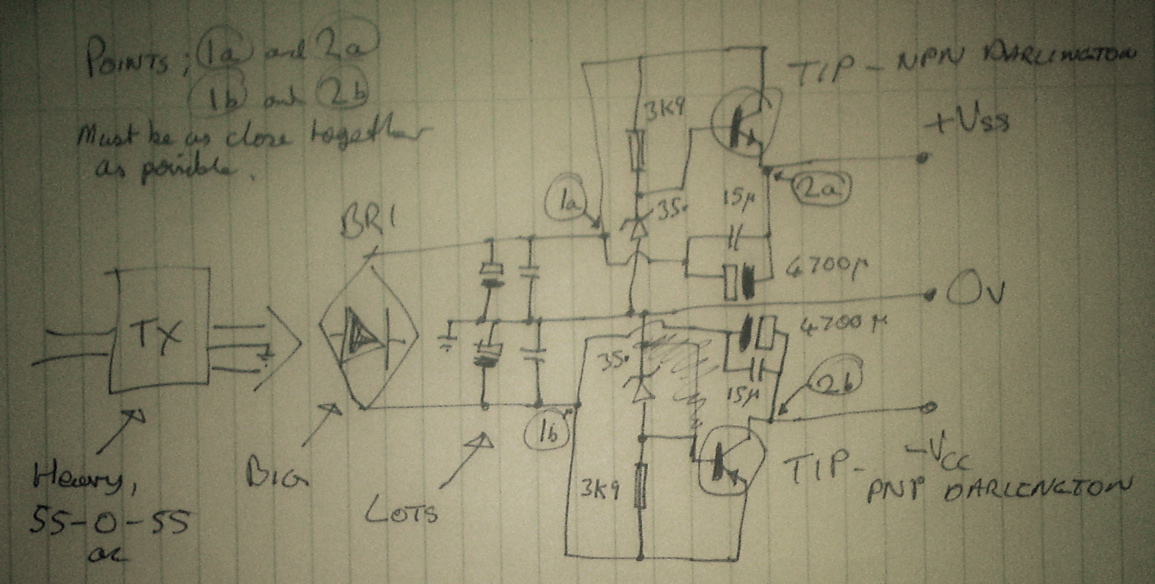 POINTS; 1a and 2a
1b and 2b
Must be as close together
as possible.
TIP-NPN DARLINGTON
3K9
+Vss
1a
35v
15µ
2a
BR1
4700µ
0v
TX
4700µ
35v
15µ
2b
1b
-Vcc
Heavy,
55-0-55
ac
BIG
LOTS
3K9
TIP-
PNP DARLINGTON